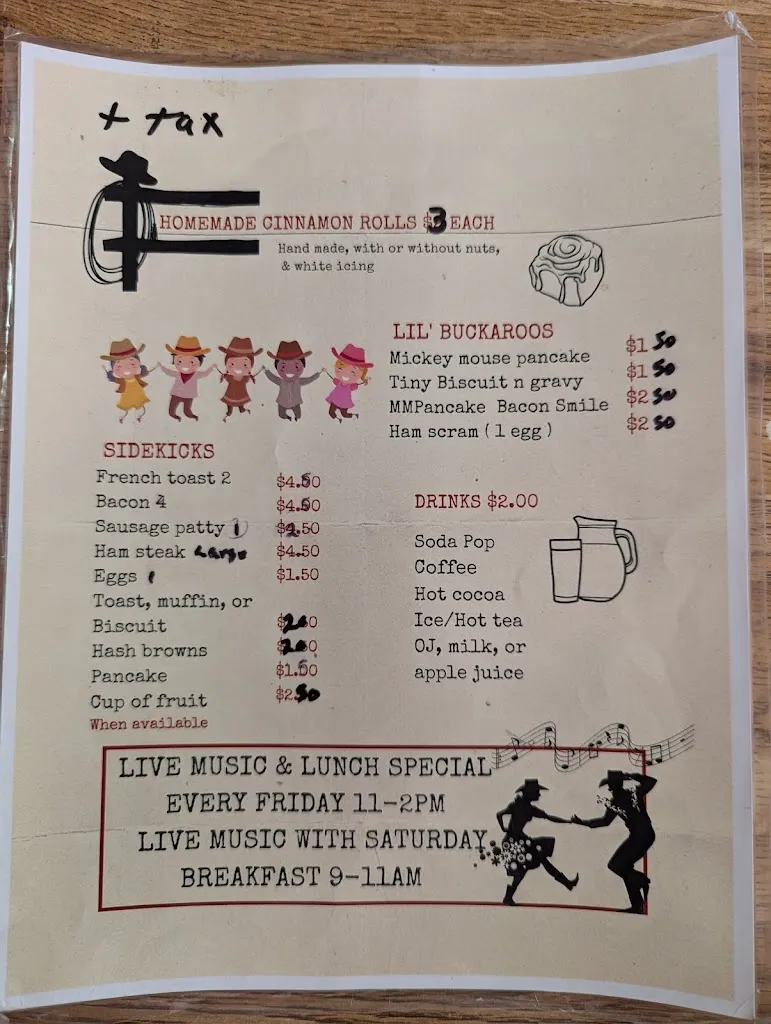 + tax
HOMEMADE CINNAMON ROLLS $3 EACH
Hand made, with or without nuts,
& white icing
LIL' BUCKAROOS
Mickey mouse pancake $1 50
Tiny Biscuit n gravy $1 50
MMPancake Bacon Smile $2 50
Ham scram ( 1 egg ) $2 50
SIDEKICKS
French toast 2 $4.50
Bacon 4 $4.50
Sausage patty 1 $2.50
Ham steak Large $4.50
Eggs 1 $1.50
Toast, muffin, or
Biscuit
Hash browns
Pancake $1.50
Cup of fruit $2.50
When available
DRINKS $2.00
Soda Pop
Coffee
Hot cocoa
Ice/Hot tea
OJ, milk, or
apple juice
LIVE MUSIC & LUNCH SPECIAL
EVERY FRIDAY 11-2PM
LIVE MUSIC WITH SATURDAY
BREAKFAST 9-11AM